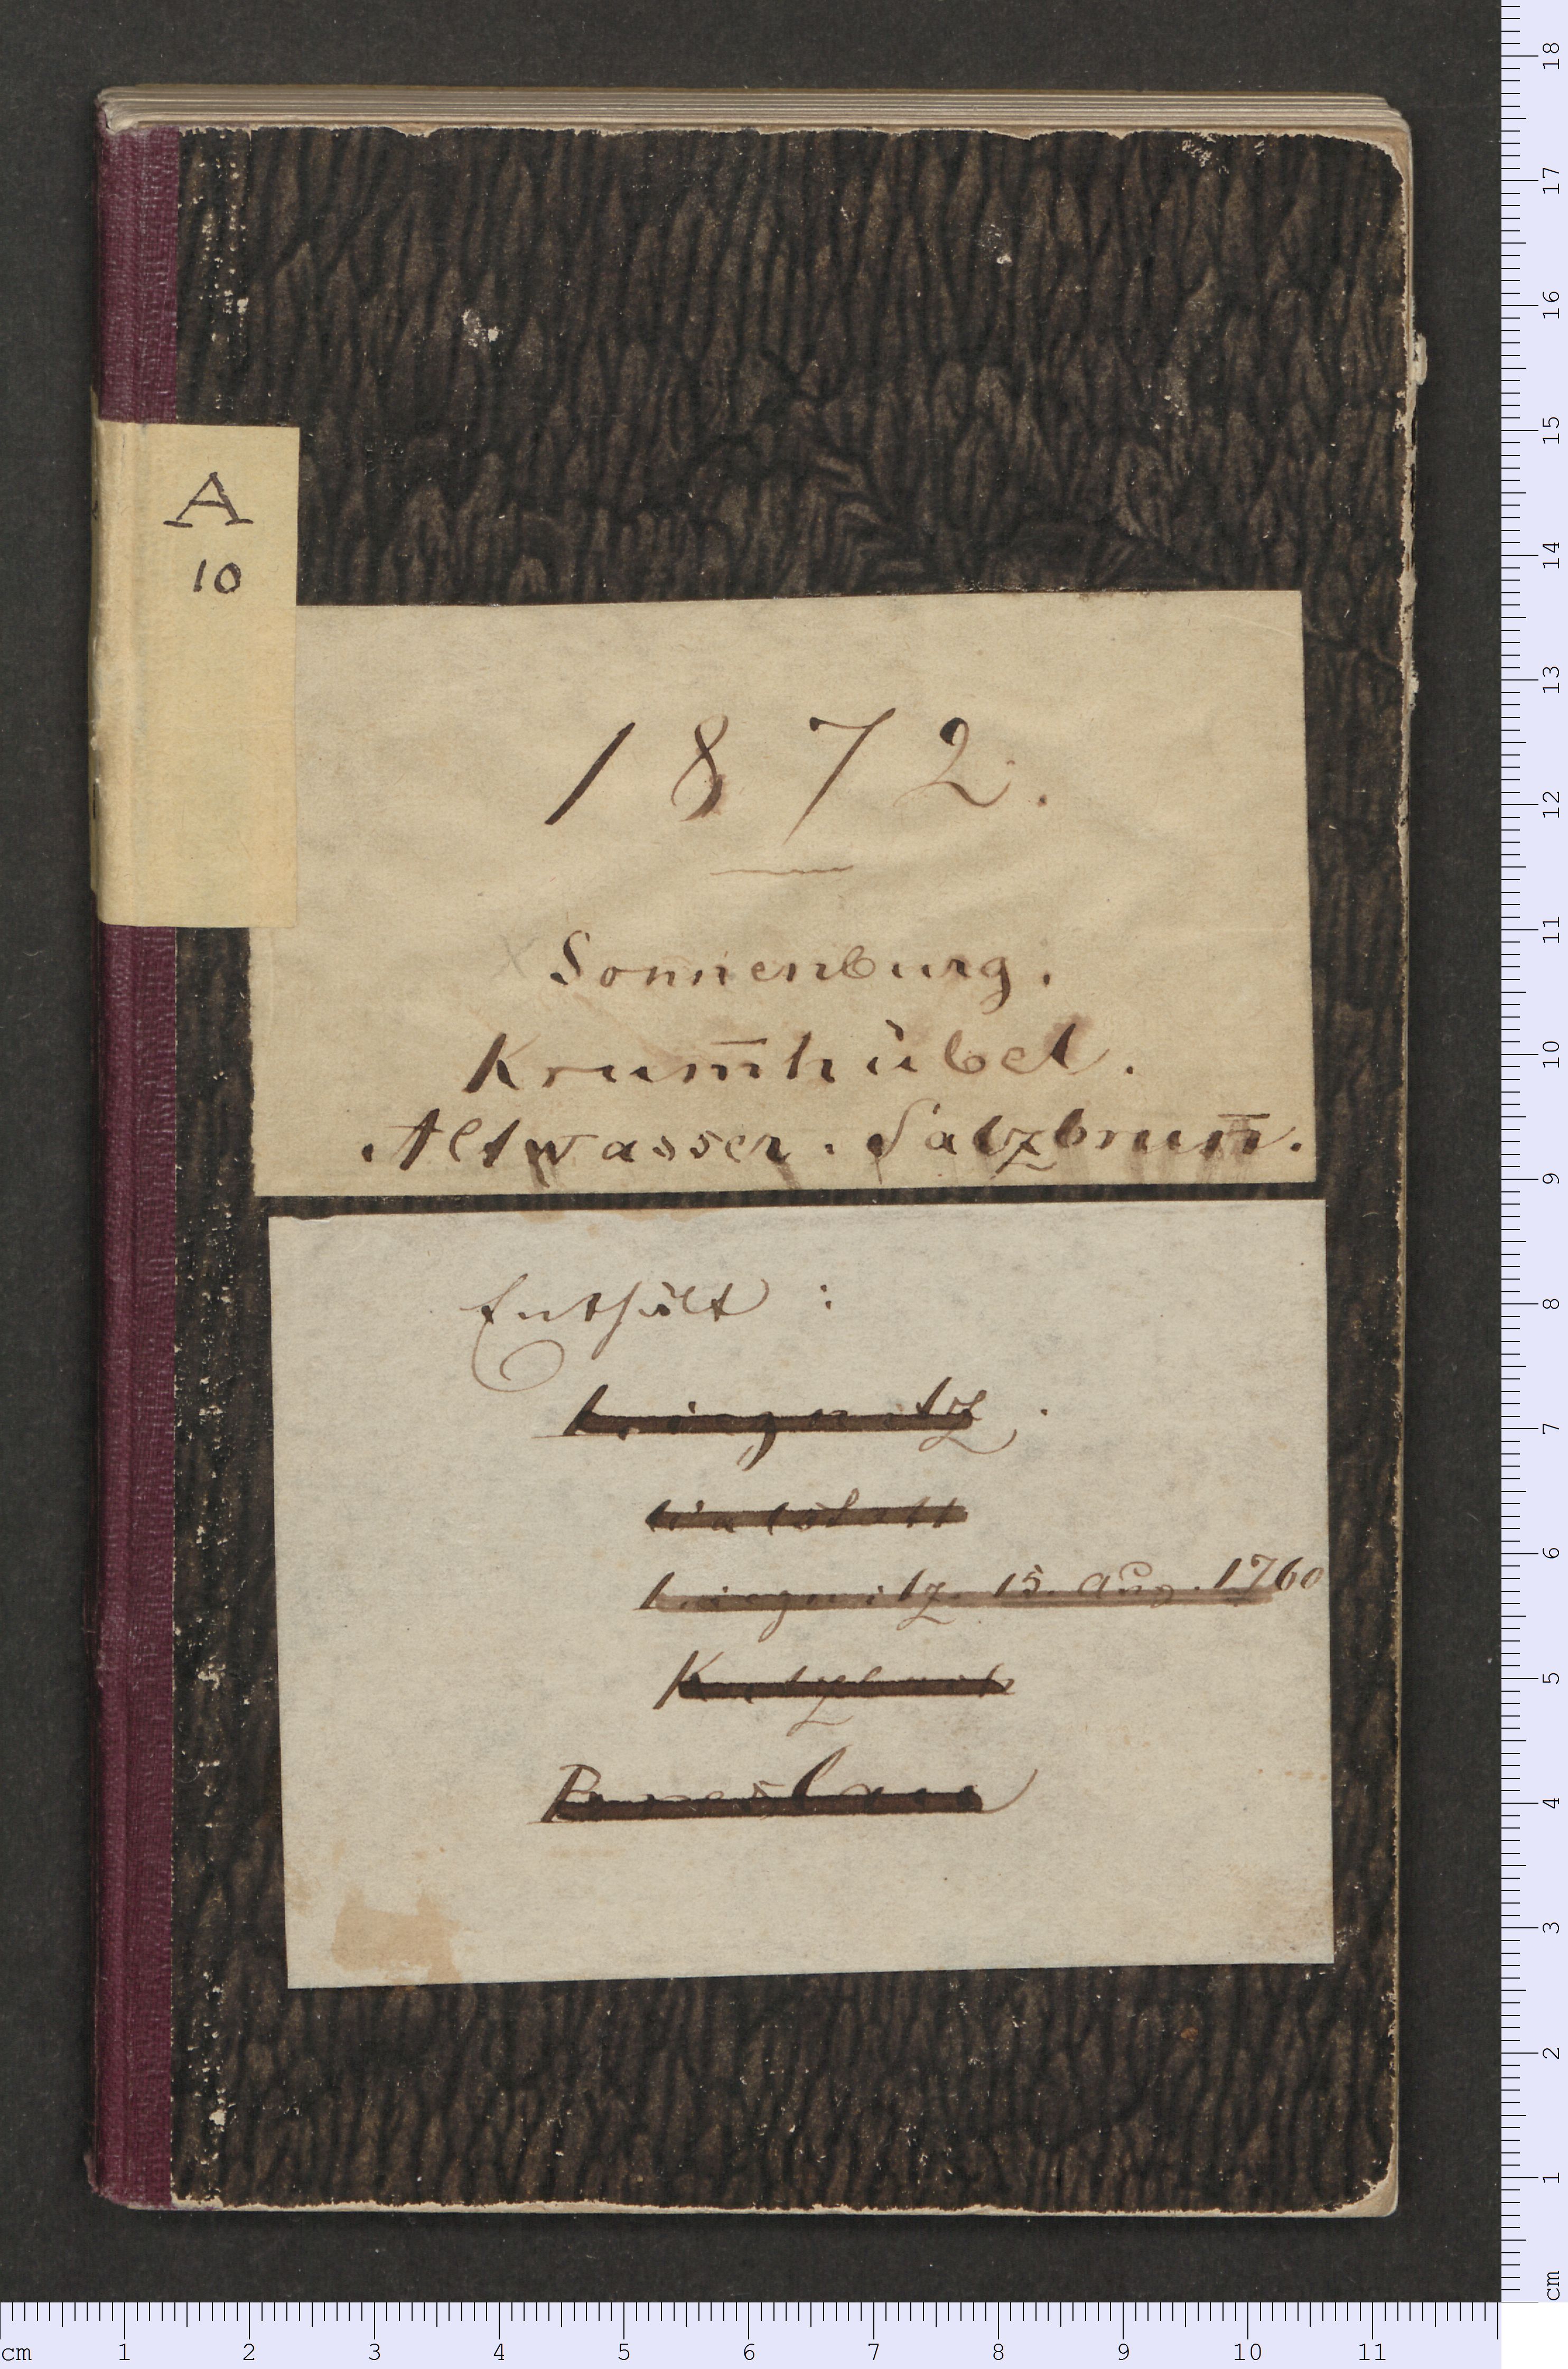 A
10
1872.
Sonnenburg.
Krum̅hübel.
Altwasser. Salzbrun̅.
Enthält:
Liegnitz.
Walstatt
Liegnitz. 15. Aug. 1760
Katzbach
Bunzlau
18
17
16
15
14
13
12
11
10
9
8
7
6
5
4
3
2
1
cm
cm 1 2 3 4 5 6 7 8 9 10 11